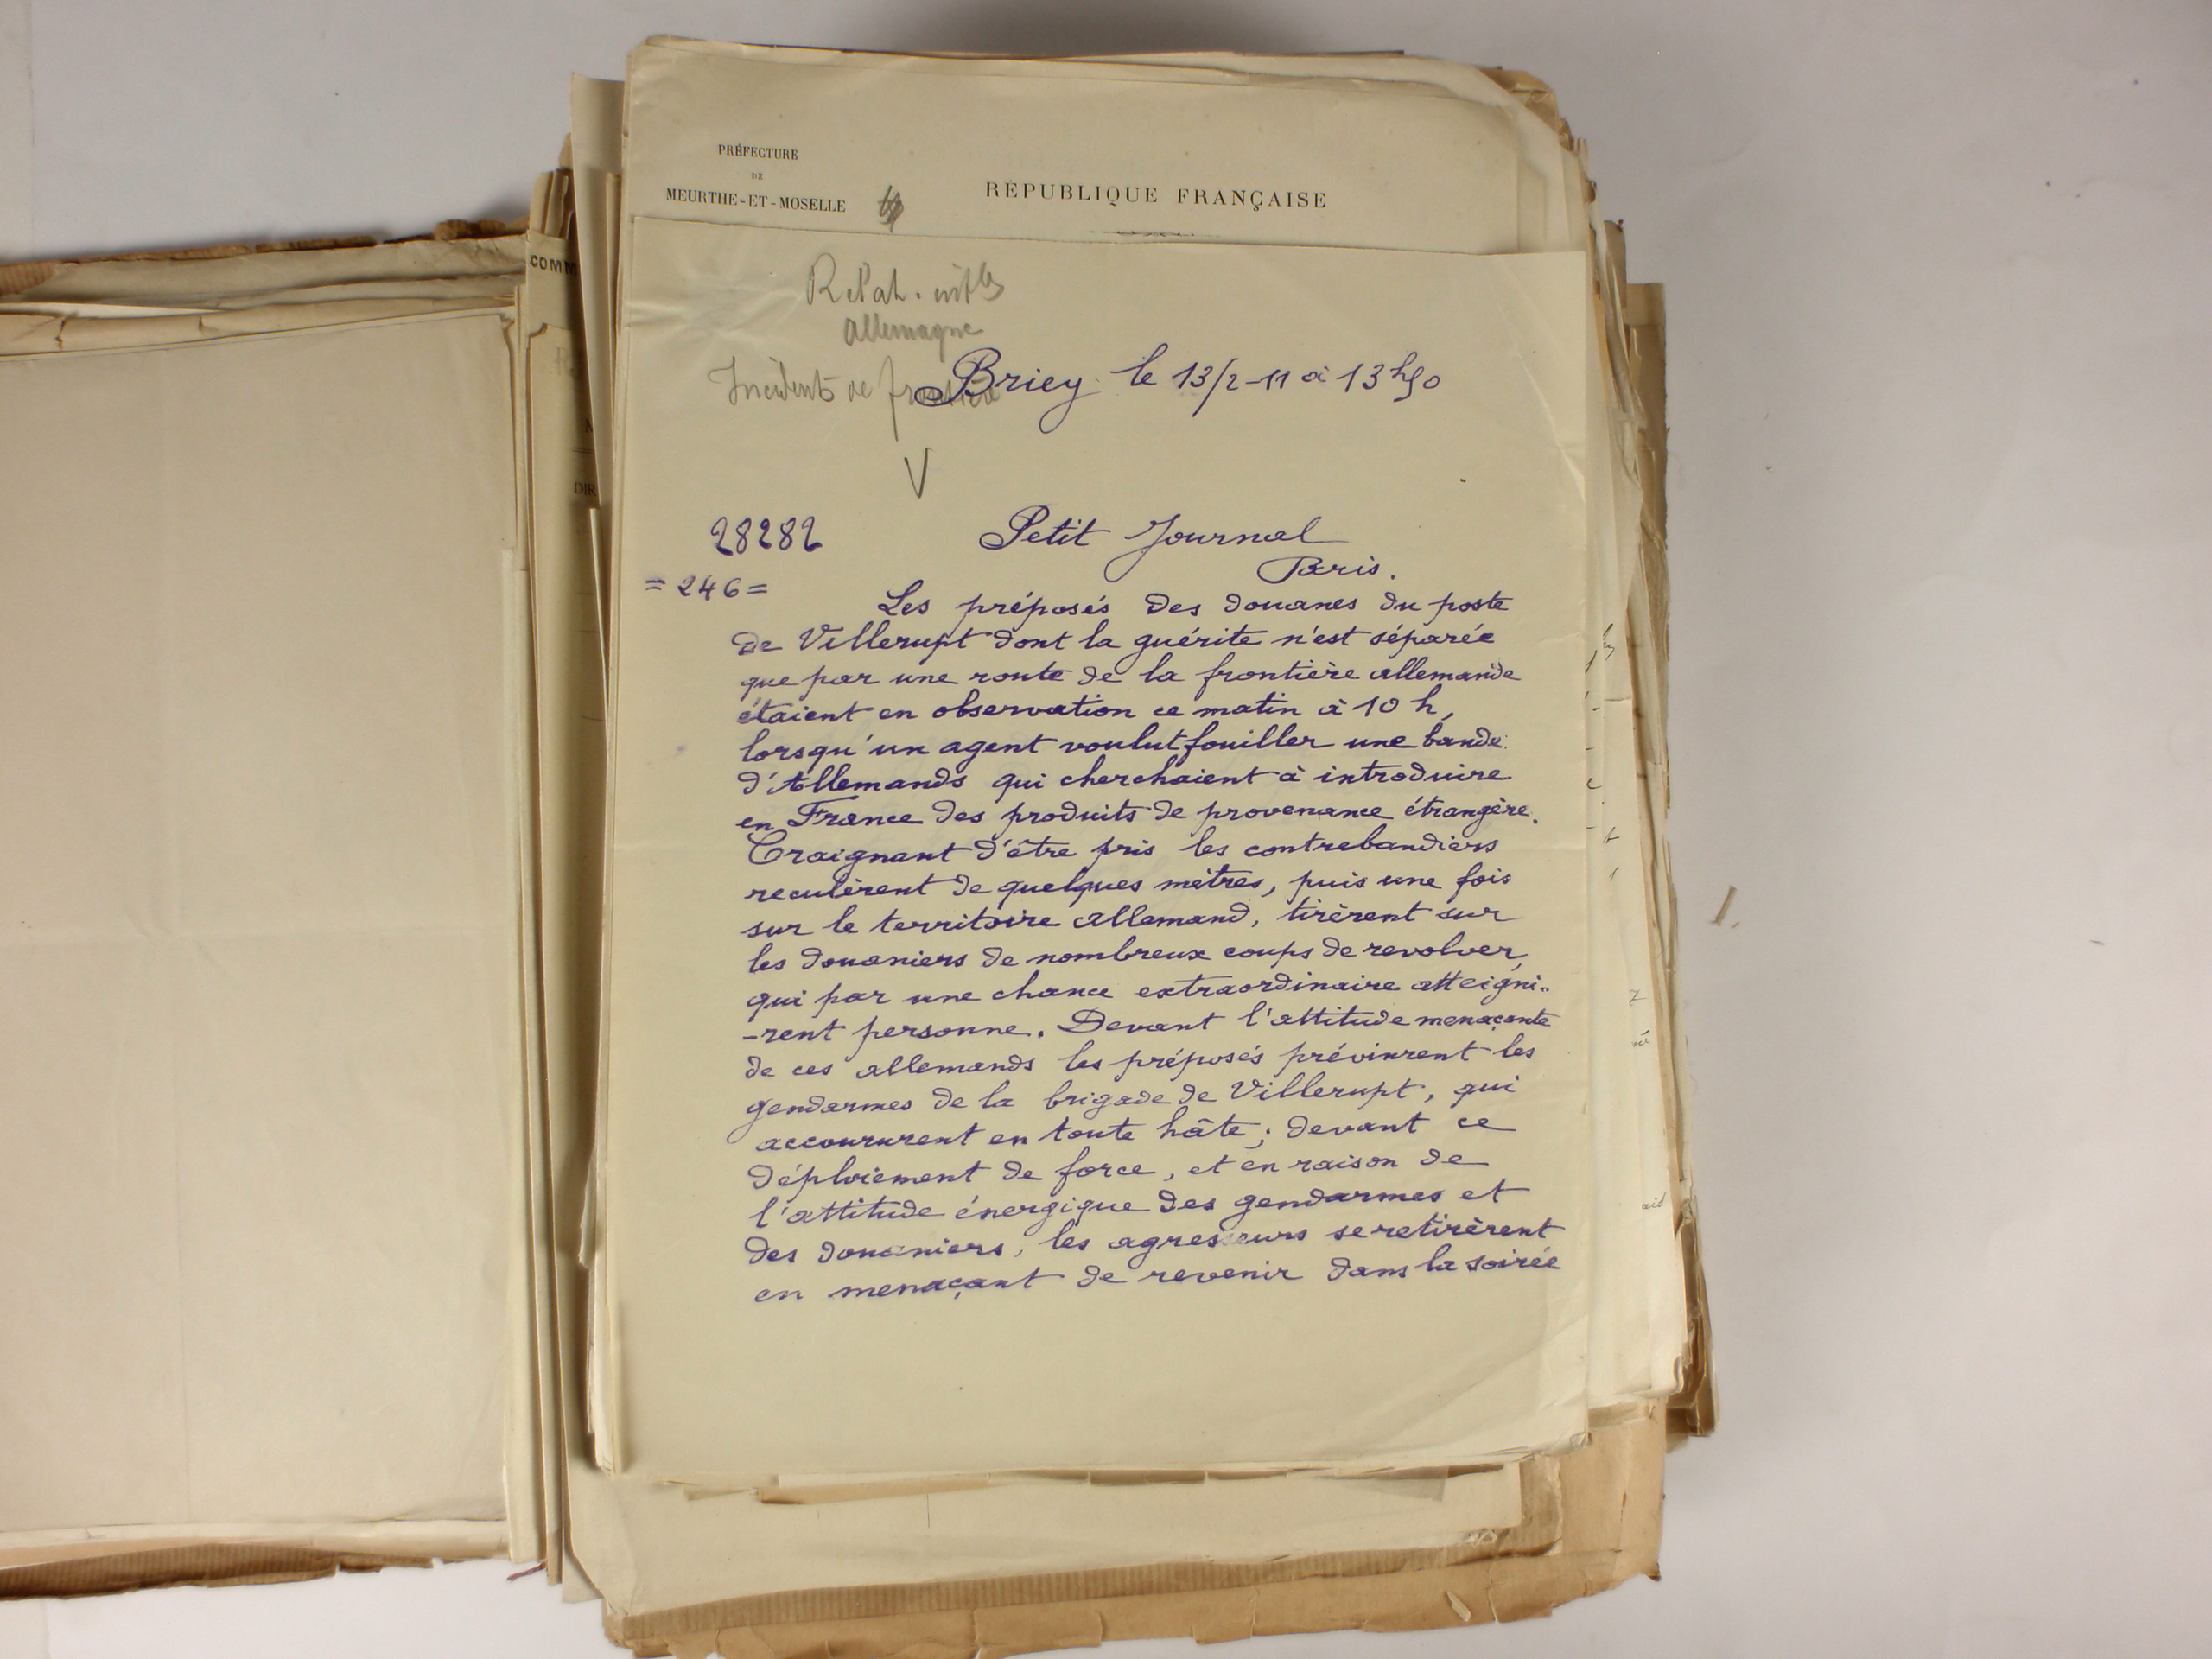 PRÉFECTURE
DE
MEURTHE-ET-MOSELLE
RÉPUBLIQUE FRANÇAISE
COMM
DIR
Allemagne
Incidents de frontière
Briey le 13/2-11 à 13h50
V
28282
Petit Journal
Paris.
= 246 =
Les préposés des douanes du poste
de Villerupt dont la guérite n'est séparée
que par une route de la frontière allemande
étaient en observation ce matin à 10 h,
lorsqu'un agent voulut fouiller une bande
d'Allemands qui cherchaient à introduire
en France des produits de provenance étrangère.
Craignant d'être pris les contrebandiers
reculèrent de quelques mètres, puis une fois
sur le territoire allemand, tirèrent sur
les douaniers de nombreux coups de revolver,
qui par une chance extraordinaire atteigni-
-rent personne. Devant l'attitude menaçante
de ces allemands les préposés prévinrent les
gendarmes de la brigade de Villerupt, qui
accoururent en toute hâte; devant ce
déploiement de force, et en raison de
l'attitude énergique des gendarmes et
des douaniers, les agresseurs se retirèrent
en menaçant de revenir dans la soirée